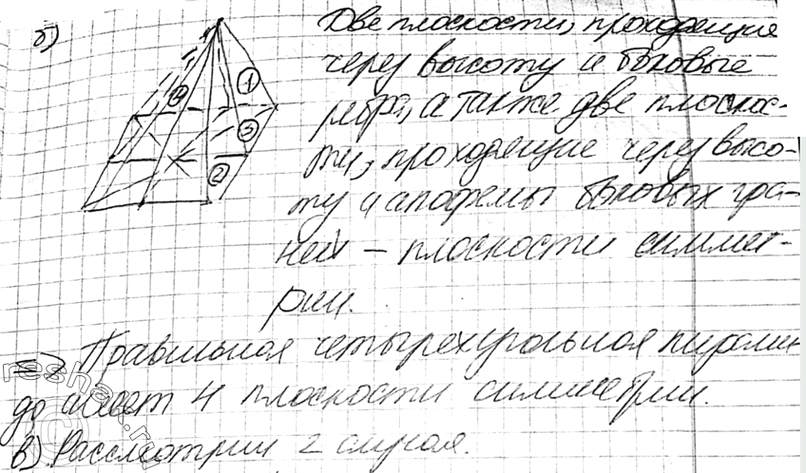 б)
Две плоскости, проходящие
через высоту и боковые
ребра, а также две плоскос-
ти, проходящие через высо-
ту и апофемы боковых гра-
ней – плоскости симмет-
рии.
1
4
3
2
=> Правильная четырехугольная пирами
да имеет 4 плоскости симметрии.
в) Рассмотрим 2 случая.
reshak.ru